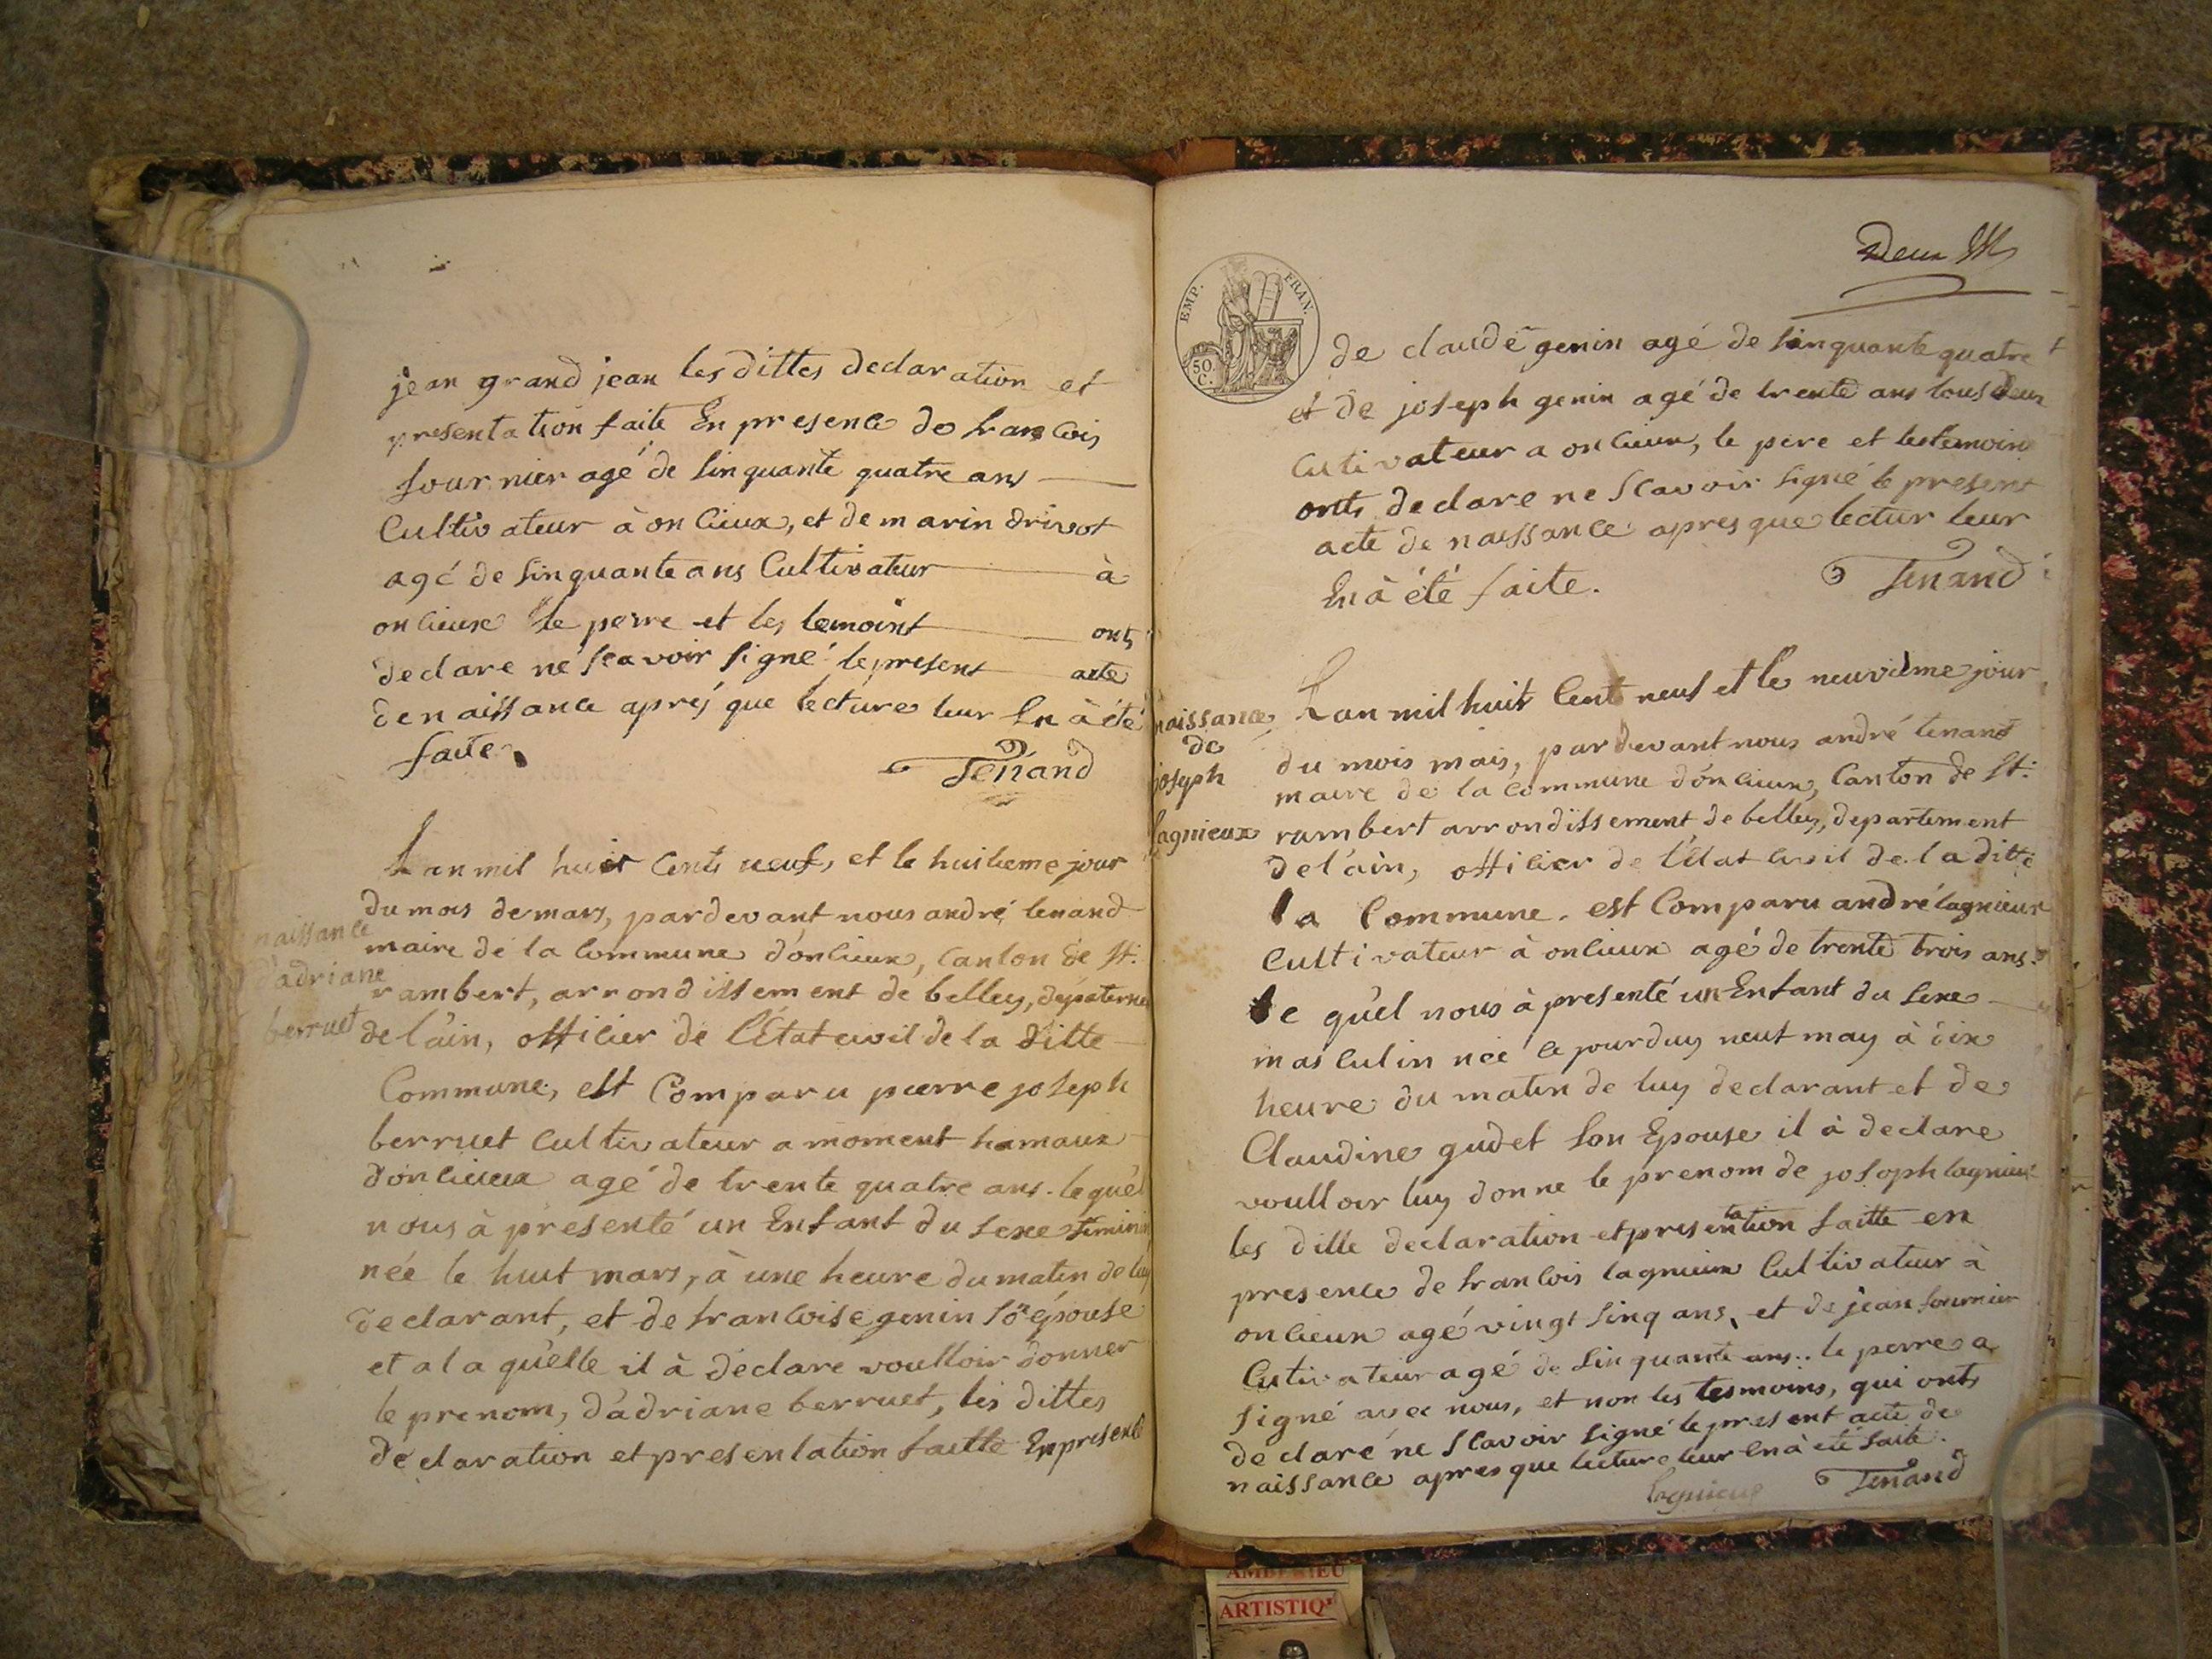 jean grand jean les dittes declaration et
presentation faite En presence de francois
fournier agé de sinquante quatre ans
Cultivateur à onlieux, et de marin drivot
agé de sinquante ans Cultivateur à
onlieux le perre et les temoint onts
declare ne scavoir signé le present acte
de naissance aprés que lecture leur En à été
faite.
Tenand
naissance
d'adriane
berruet
Lan mil huit Cents neuf, et le huitieme jour
du mois de mars, pardevant nous andré tenand
maire de la Commune d'onlieux, Canton de St.
rambert, arrondissement de belley, departement
de l'ain, officier de l'État civil de la ditte
Commune, est Comparu pierre joseph
berruet Cultivateur a moment hamaux
d'onlieux agé de trente quatre ans. le quel
nous à presenté un Enfant du sexe feminin
née le huit mars, à une heure du matin de luy
declarant, et de francoise genin son épouse
et a la qu'elle il à declare voulloir donner
le prenom, d'adriane berruet, les dittes
declaration et presentation faitte En presence
Deux
EMP. FRAN.
50. C.
de claude genin agé de sinquante quatre
et de joseph genin agé de trente ans tous deux
Cutivateur a onlieux, le pere et les temoins
onts declare ne scavoir signé le present
acte de naissance apres que lectur leur
En à été faite.
Tenand
naissance
de
joseph
lagnieux
Lan mil huit Cent neuf et le neuvieme jour
du mois mais, par devant nous andré tenand
maire de la commune d'onlieux, Canton de St.
rambert arrondissement de belley, departement
de l'ain, officier de l'État civil de la ditte
la Commune. est Comparu andré lagnieux
Cultivateur à onlieux agé de trente trois ans.
le qu'el nous à presenté un Enfant du sexe
masculin née le jourduy neuf may à dix
heure du matin de luy declarant et de
Claudine gudet son Epouse il à declare
voulloir luy donne le prenom de joseph lagnieux
les ditte declaration et presentation faitte en
presence de francois lagnieux Cultivateur à
onlieux agé vingt sinq ans, et de jean fournier
Cutivateur agé de sinquante ans. le perre a
signé avec nous, et non les tesmoins, qui onts
declaré ne scavoir signé le present acte de
naissance apres que lecture leur en à été faite.
lagnieux Tenand
AMBERIEU
ARTISTIQ